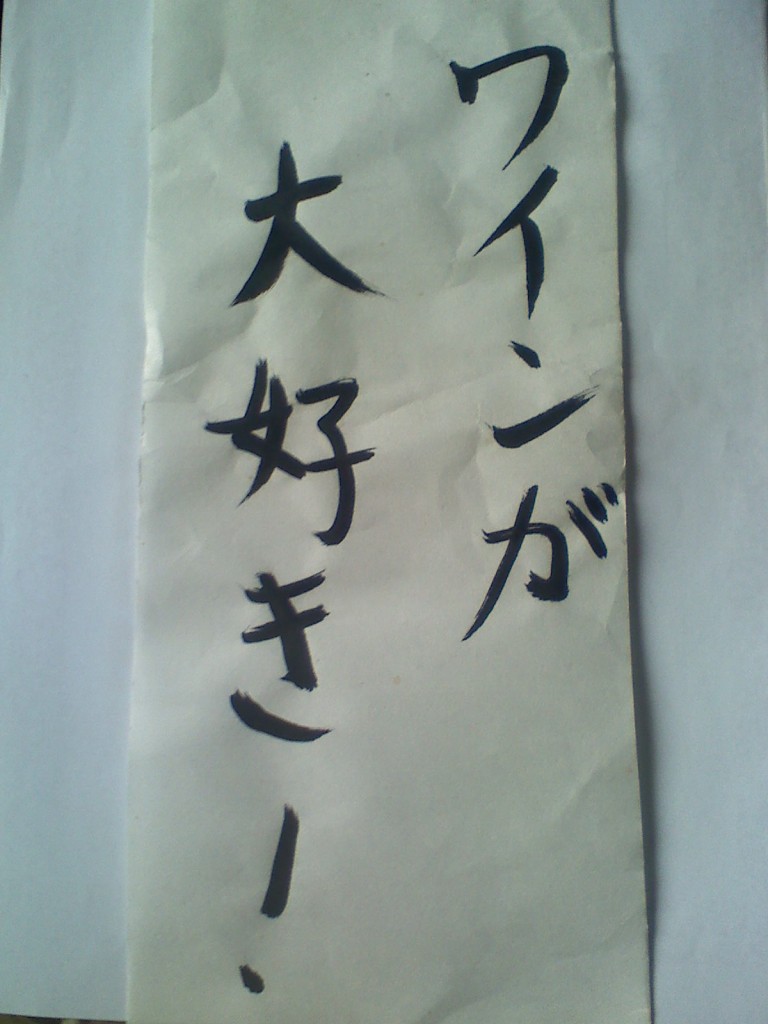 ワインが
大好き!